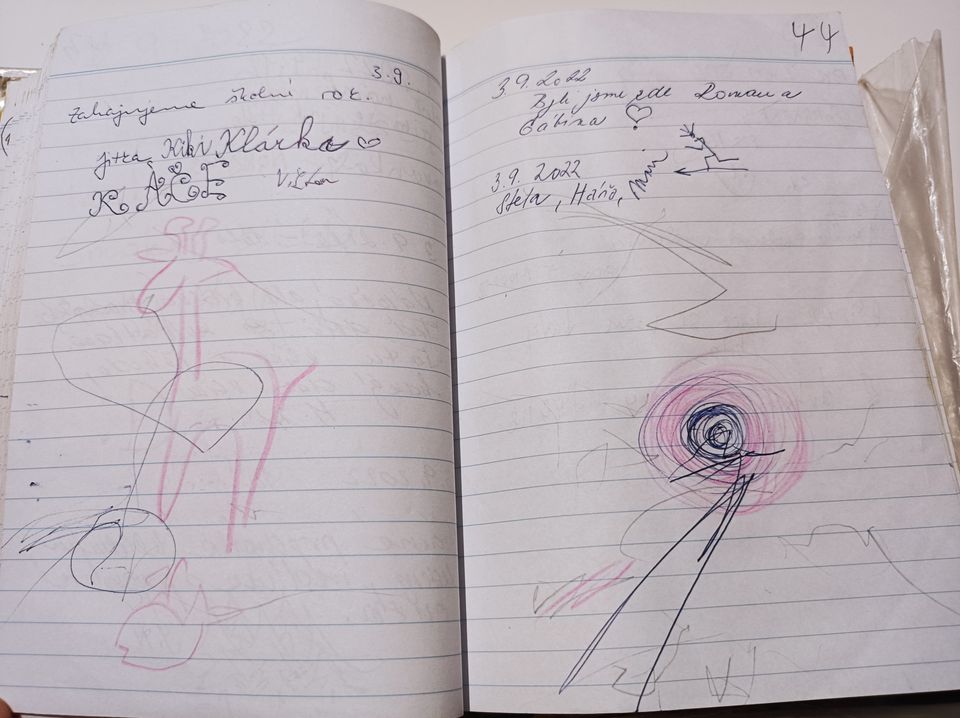 3.9.
Zahajujeme školní rok.
Jitka, Kiki Klárka
KÁČE
44
3.9.2022
Byli jsme zde Roman a
3.9.2022
Stela, Háňa,